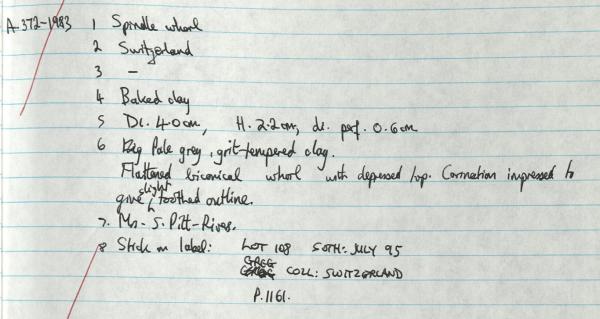 A.372-1983 1 Spindle whorl
2 Switzerland
3 —
4 Baked clay
5 Di. 4.0cm, H. 2.2cm, di. perf. 0.6cm
6 Pale grey, grit-tempered clay.
Flattened biconical whorl with depressed top. Carination impressed to
give slight toothed outline.
7. Mr. S. Pitt-Rivers.
8 Stick on label: LOT 108 SOTH: JULY 95
GREG COLL: SWITZERLAND
P.1161.